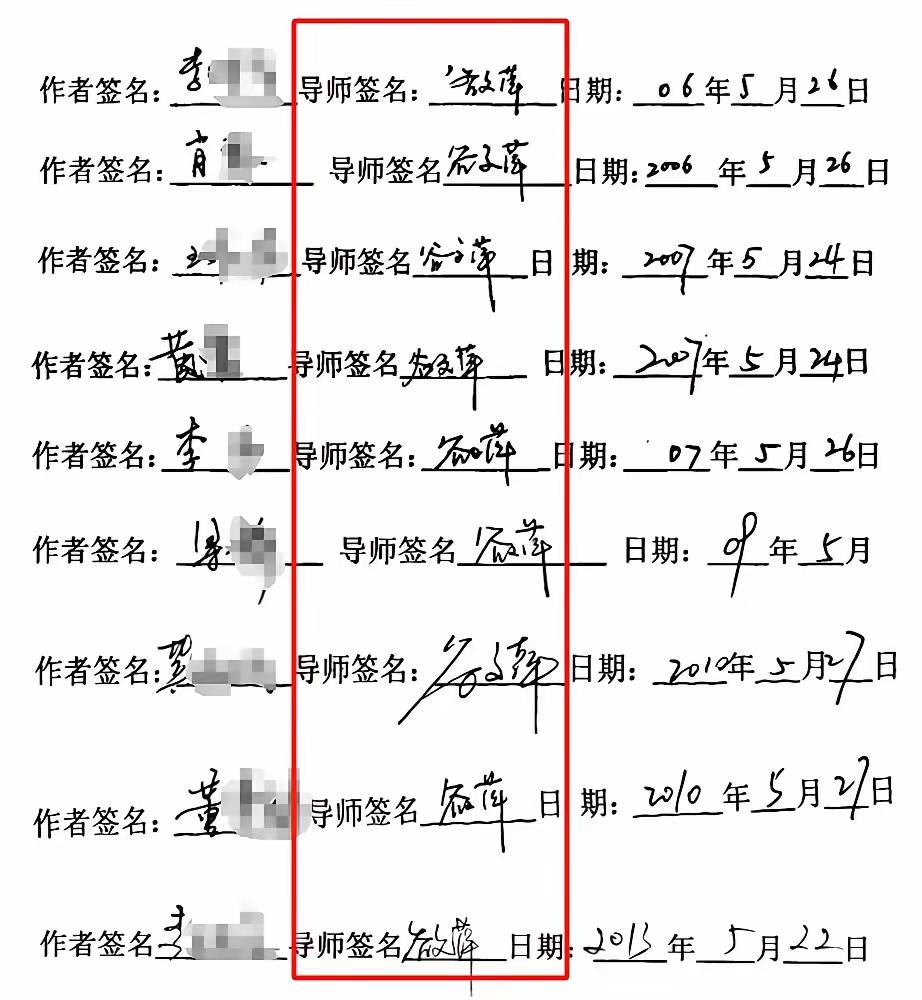 作者签名：李 导师签名：谷文萍 日期：06年5月26日
作者签名：肖 导师签名谷文萍 日期：2006年5月26日
作者签名： 导师签名谷文萍 日 期：2007年5月24日
作者签名：黄 导师签名：谷文萍 日期：2007年5月24日
作者签名：李 导师签名：谷文萍 日期：07年5月26日
作者签名： 导师签名谷文萍 日期：09年5月
作者签名： 导师签名：谷文萍 日期：2010年5月27日
作者签名：董 导师签名谷文萍 日 期：2010年5月27日
作者签名 导师签名谷文萍 日期：2013年5月22日